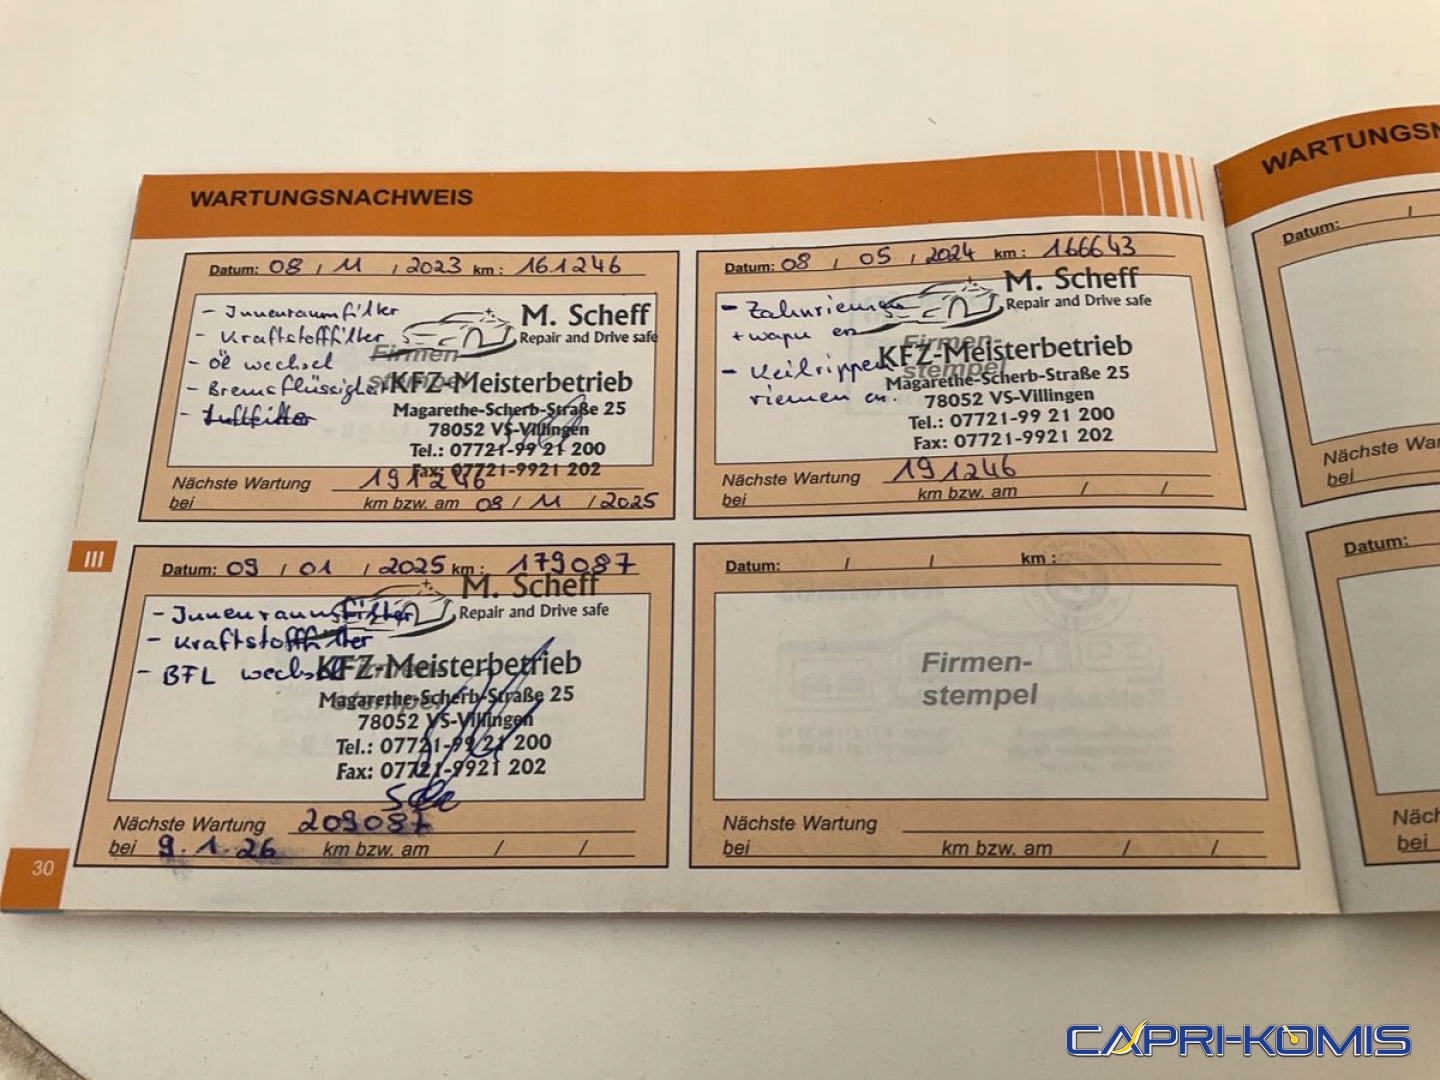 WARTUNGSNACHWEIS
Datum: 08 / 11 / 2023 km: 161246
- Innenraumfilter
- Kraftstofffilter
- Öl wechsel
- Bremsflüssigkeit
- Luftfilter
Firmen-
stempel
M. Scheff
Repair and Drive safe
KFZ-Meisterbetrieb
Magarethe-Scherb-Straße 25
78052 VS-Villingen
Tel.: 07721-99 21 200
Fax: 07721-9921 202
Nächste Wartung 191246
bei km bzw. am 08 / 11 / 2025
Datum: 08 / 05 / 2024 km: 166643
- Zahnriemen
+ wapu er
- Keilrippen
riemen er.
Firmen-
stempel
M. Scheff
Repair and Drive safe
KFZ-Meisterbetrieb
Magarethe-Scherb-Straße 25
78052 VS-Villingen
Tel.: 07721-99 21 200
Fax: 07721-9921 202
Nächste Wartung 191246
bei km bzw. am / /
III
Datum: 09 / 01 / 2025 km: 179087
- Innenraumfilter
- Kraftstofffilter
- BFL wechsel
M. Scheff
Repair and Drive safe
KFZ-Meisterbetrieb
Magarethe-Scherb-Straße 25
78052 VS-Villingen
Tel.: 07721-99 21 200
Fax: 07721-9921 202
Nächste Wartung 209087
bei 9.1.26 km bzw. am / /
Datum: / / km:
Firmen-
stempel
Nächste Wartung
bei km bzw. am / /
30
WARTUNGSN
Datum: /
Nächste War
bei
Datum:
Näch
bei
CAPRI-KOMIS